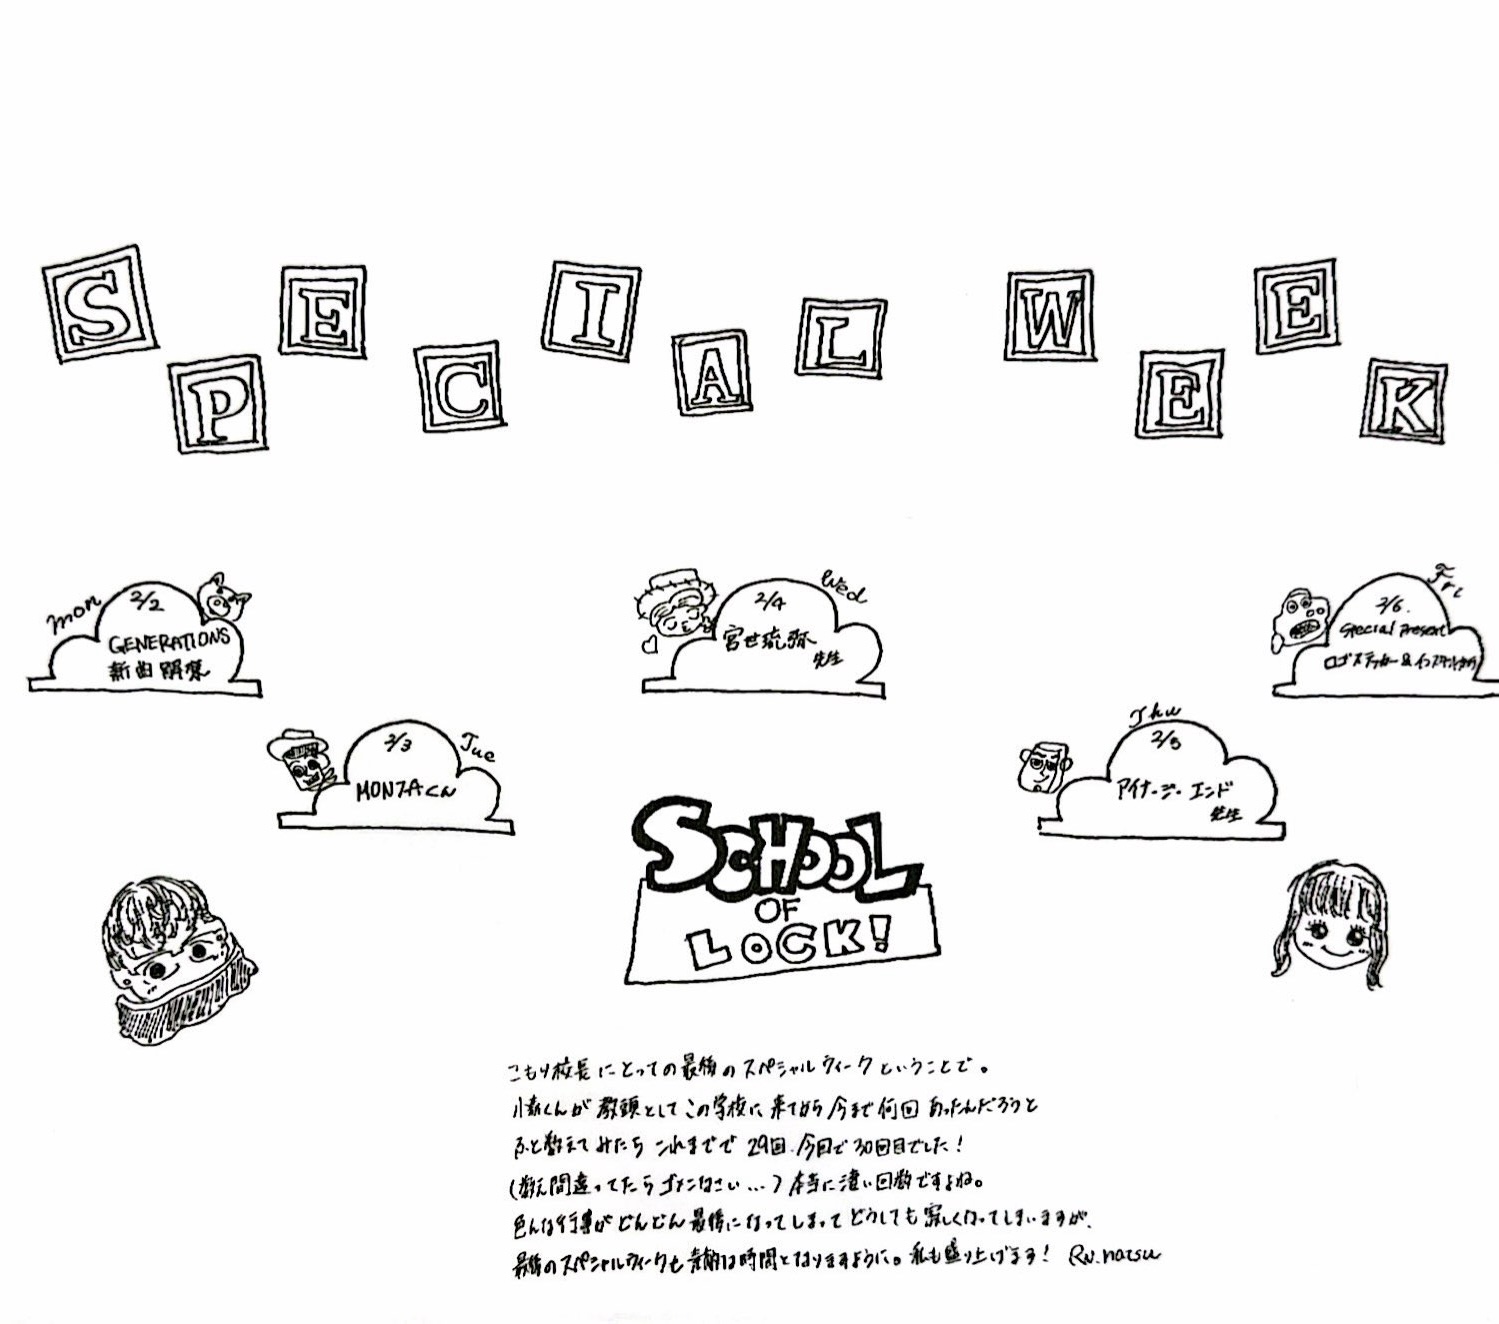 SPECIAL WEEK
mon
2/2
GENERATIONS
新曲解禁
Tue
2/3
MONZAくん
Wed
2/4
宮世琉弥
先生
Thu
2/5
アイナ・ジ・エンド
先生
Fri
2/6.
Special present
ロゴステッカー&
SCHOOL
OF
LOCK!
こもり校長にとっての最後のスペシャルウィークということで。
小森くんが教頭としてこの学校に来てから今まで何回あったんだろうと
ふと数えてみたら これまでで 29回.今回で30回目でした!
(数え間違ってたらゴメンなさい...)本当に凄い回数ですよね。
色んな行事がどんどん最後になってしまってどうしても寂しくなってしまいますが、
最後のスペシャルウィークも素敵な時間となりますように。私も盛り上げます! RN.natsu